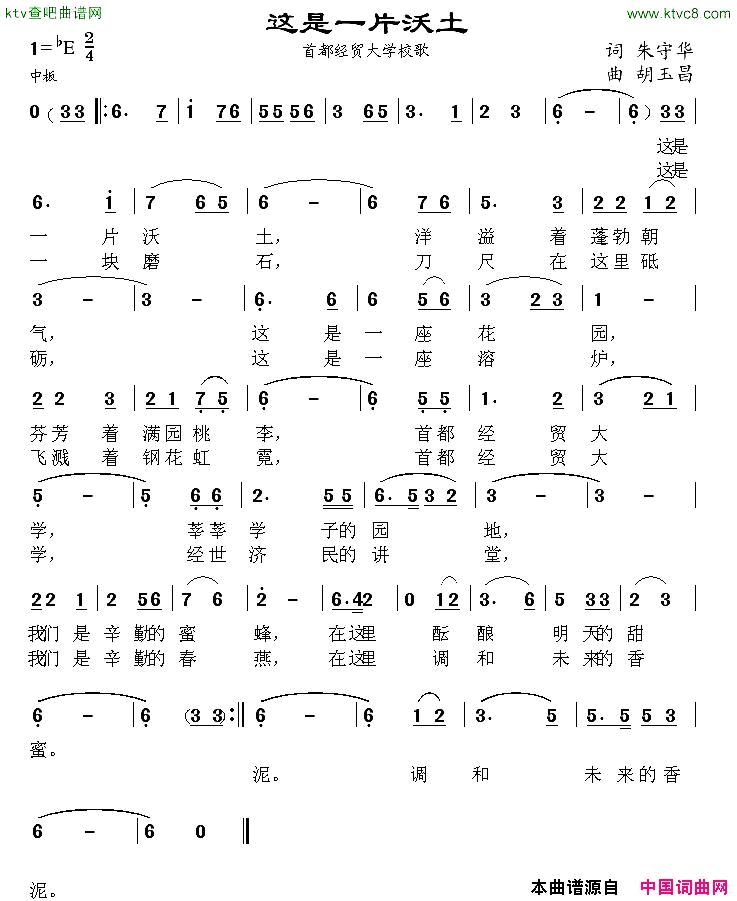 ktv查吧曲谱网
这是一片沃土
www.ktvc8.com
1=♭E 2/4
首都经贸大学校歌
词 朱守华
中板
曲 胡玉昌
0 (33 |: 6. 7 | 1 76 | 5556 56 | 3 65 | 3. 1 | 2 3 | 6 - | 6) 33 |
这是
这是
6. 1 | 7 65 | 6 - | 6 76 | 5. 3 | 22 12 |
一 片 沃 土， 洋 溢 着 蓬勃 朝
一 块 磨 石， 刀 尺 在 这里 砥
3 - | 3 - | 6. 6 | 6 56 | 3 23 | 1 - |
气， 这 是 一 座 花 园，
砺， 这 是 一 座 溶 炉，
2 2 3 | 21 75 | 6 - | 6 55 | 1. 2 | 3 21 |
芬芳 着 满园 桃 李， 首都 经 贸 大
飞溅 着 钢花 虹 霓， 首都 经 贸 大
5 - | 5 66 | 2. 55 | 6.532 | 3 - | 3 - |
学， 莘莘 学 子的 园 地，
学， 经世 济 民的 讲 堂，
22 1 | 2 56 | 7 6 | 2 - | 6.42 | 0 12 | 3. 6 | 5 33 | 2 3 |
我们 是 辛 勤的 蜜 蜂， 在这里 酝 酿 明 天的 甜
我们 是 辛 勤的 春 燕， 在这里 调 和 未 来的 香
6 - | 6 (33) :| 6 - | 6 12 | 3. 5 | 5. 5 53 |
蜜。
泥。 调 和 未 来的香
6 - | 6 0 ‖
泥。
本曲谱源自 中国词曲网